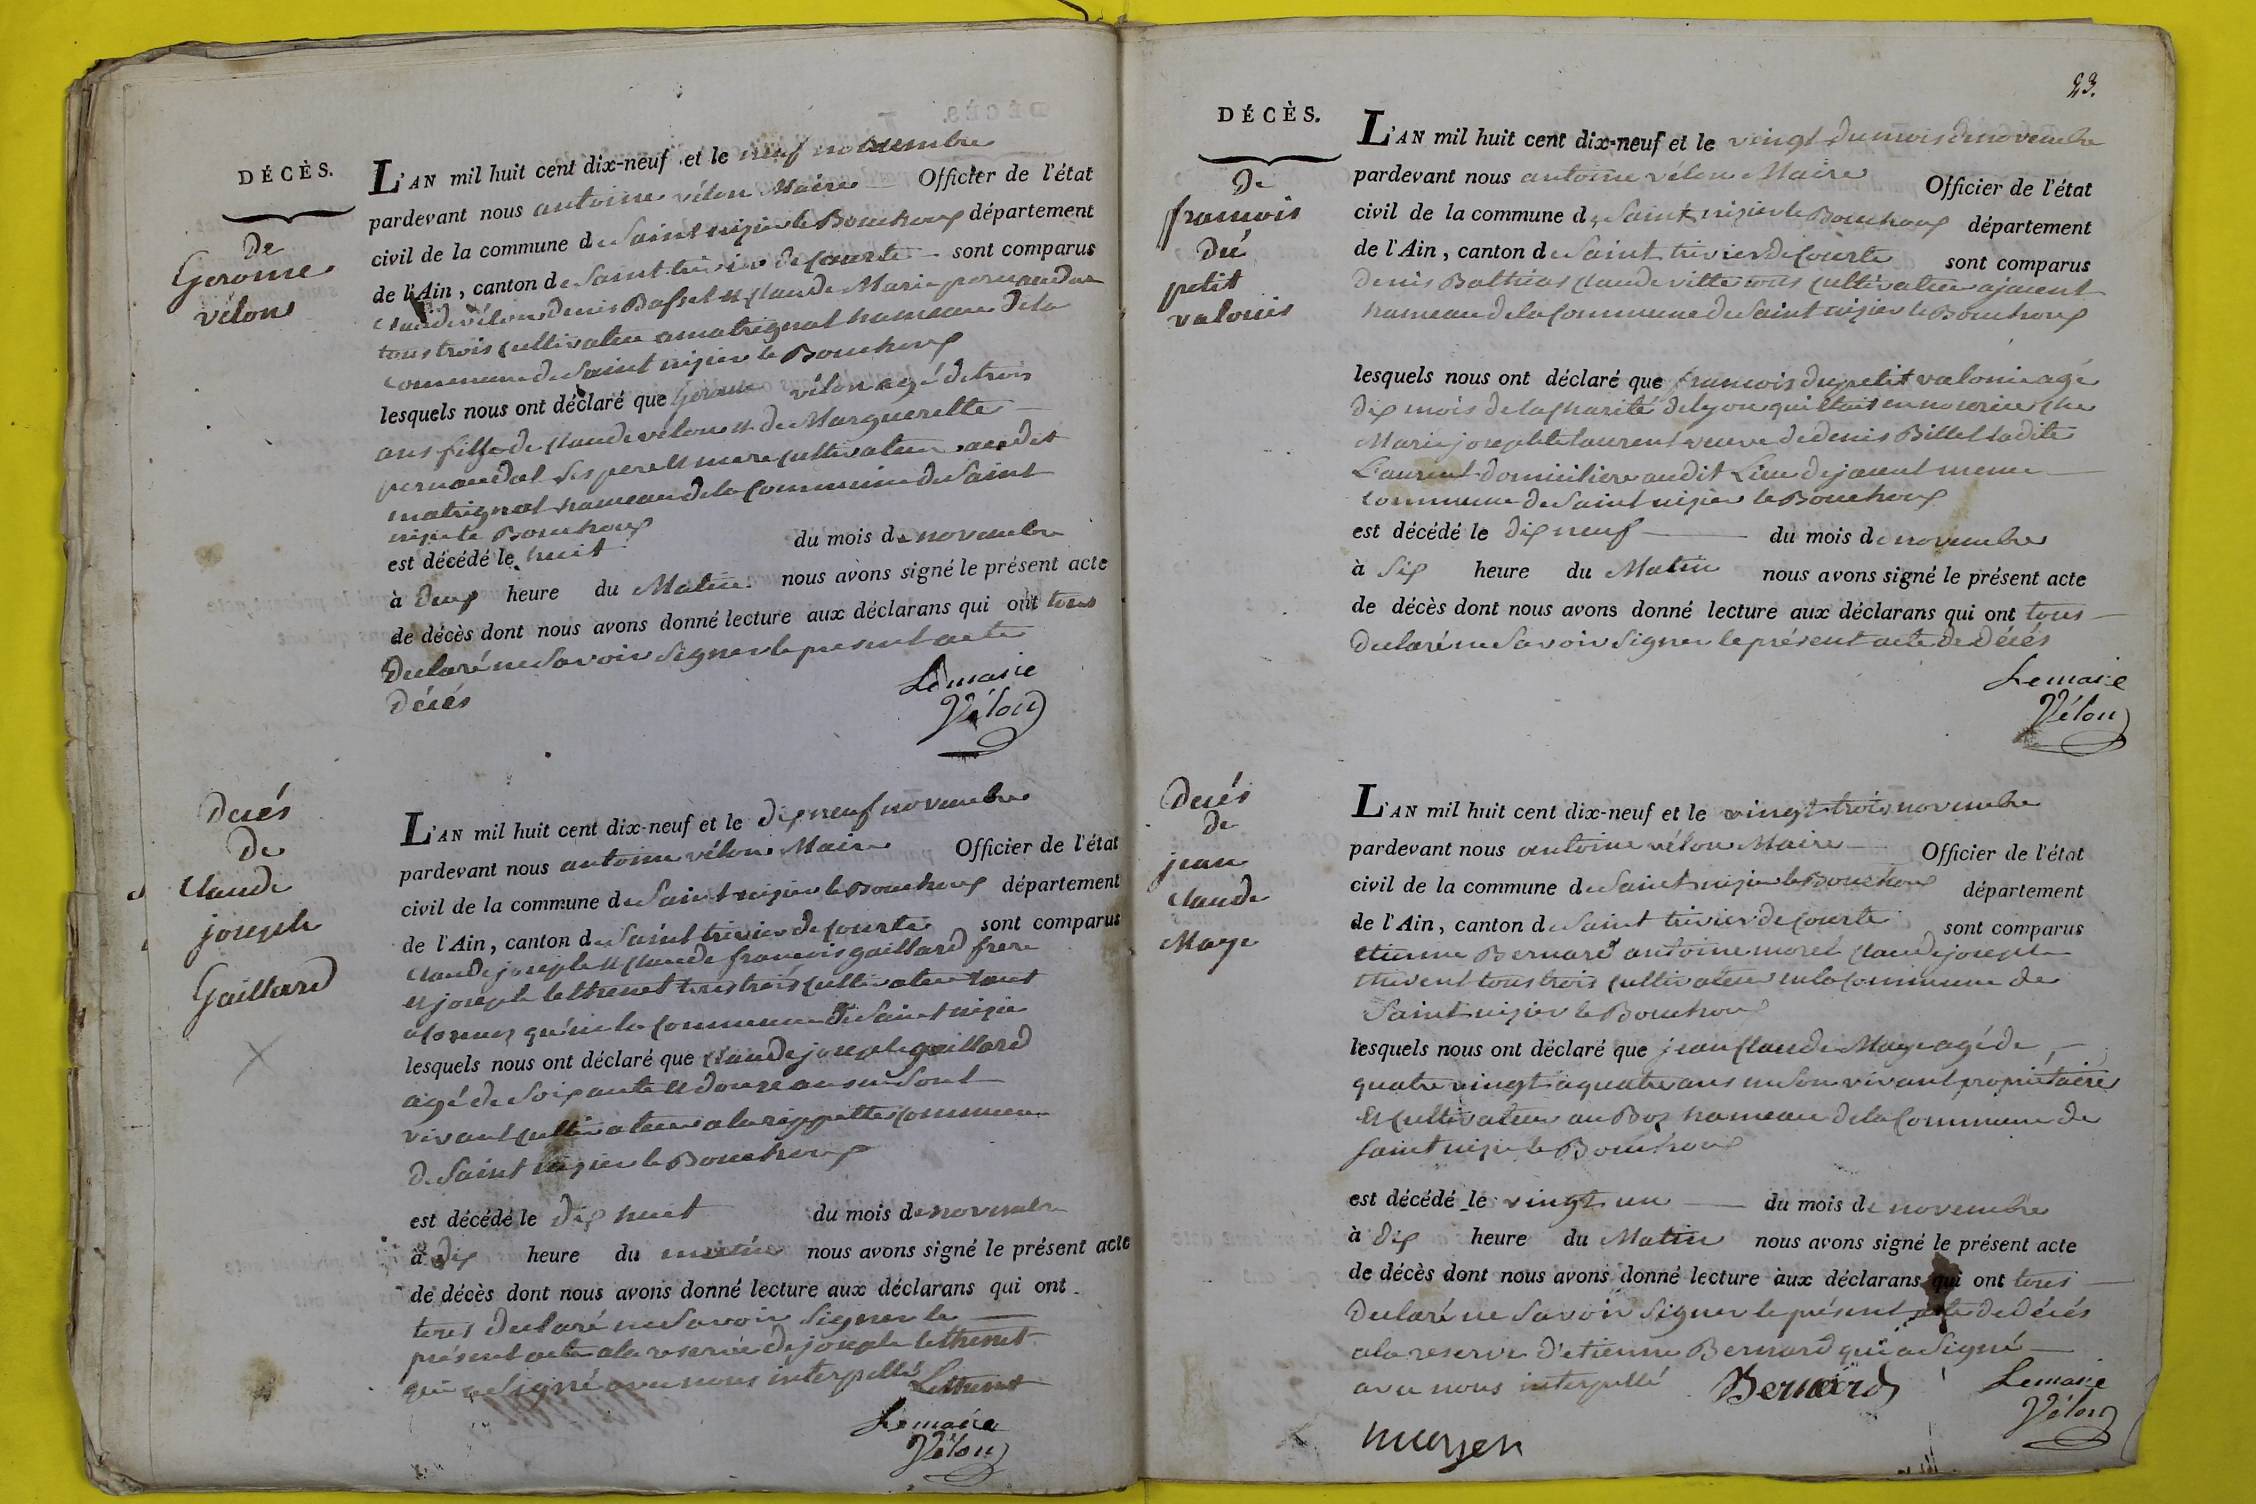 DÉCÈS.
De
Gerome
vélon
L'AN mil huit cent dix-neuf et le neuf novembre
pardevant nous antoine vélon Maire Officier de l'état
civil de la commune de Saint nizier le Bouchoux département
de l'Ain, canton de Saint trivier de Courte sont comparus
Claude vélon denis Basset et Claude Marie
tous trois cultivateur a matrignat hameau dela
commune de Saint nizier le Bouchoux
lesquels nous ont déclaré que Gerome vélon agé de trois
ans fils de Claude velon et de Marguerette
pernaudat ses pere et mere cultivateur audit
matrignat hameau dela Commune de Saint
nizie le Bouchoux
est décédé le huit du mois de novembre
à deux heure du Matin nous avons signé le présent acte
de décès dont nous avons donné lecture aux déclarans qui ont tous
declaré ne savoir signer le present acte
décés
Lemaire
Vélon
Decés
De
Claude
joseph
Gaillard
L'AN mil huit cent dix-neuf et le dix neuf novembre
pardevant nous antoine vélon Maire Officier de l'état
civil de la commune de Saint nizier le Bouchoux département
de l'Ain, canton de Saint trivier de Courte sont comparus
Claude joseph et Claude francois gaillard frere
et joseph lethenet tous trois cultivateur tant
a qu'en la commune de Saint nizie
lesquels nous ont déclaré que Claude joseph gaillard
agé de soixante et douze ans en sont
vivant cultivateur a la rippette commune
de Saint nizier le Bouchoux
est décédé le dix huit du mois de novembre
à dix heure du matin nous avons signé le présent acte
de décès dont nous avons donné lecture aux déclarans qui ont
tous declaré ne savoir signer le
présent acte ala reserve de joseph lethenet
qui a signé avec nous interpellé Lethenet
Lemaire
Vélon
23.
DÉCÈS.
De
francois
du
petit
valouis
L'AN mil huit cent dix-neuf et le vingt du mois de novembre
pardevant nous antoine vélon Maire Officier de l'état
civil de la commune de Saint nizier le Bouchoux département
de l'Ain, canton de Saint trivier de Courte sont comparus
denis Bathias Claude vitte tous cultivateur ajacent
hameau de la Commune de Saint nizier le Bouchoux
lesquels nous ont déclaré que francois du petit valouis agé
dix mois de la Charité de lyon qui etait en nourrice che
Marie josephte laurent veuve de denis Billet ladite
Laurent domiciliere audit Lieu de jacent meme
commune de Saint nizier le Bouchoux
est décédé le dix neuf du mois de novembre
à Six heure du Matin nous avons signé le présent acte
de décès dont nous avons donné lecture aux déclarans qui ont tous
declaré ne savoir signer le présent acte de décés
Lemaire
Vélon
Decés
de
jean
Claude
Maye
L'AN mil huit cent dix-neuf et le vingt trois novembre
pardevant nous antoine vélon Maire Officier de l'état
civil de la commune de Saint nizier le Bouchoux département
de l'Ain, canton de Saint trivier de Courte sont comparus
etienne Bernard antoine morel Claude joseph
thivent tous trois cultivateur en la Commune de
Saint nizier le Bouchoux
lesquels nous ont déclaré que jean Claude Maye agé de
quatre vingt a quatre ans en son vivant proprietaire
et cultivateur au Boz hameau de la Commune de
Saint nizie le Bouchoux
est décédé le vingt un du mois de novembre
à dix heure du Matin nous avons signé le présent acte
de décès dont nous avons donné lecture aux déclarans qui ont tous
declaré ne savoir signer le présent acte de décés
ala reserve d'etienne Bernard qui a signé
avec nous interpellé Bernard
Lemaire
Vélon